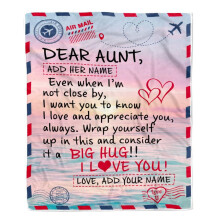 AIR MAIL
DEAR AUNT,
ADD HER NAME
Even when I'm
not close by,
I want you to know
I love and appreciate you,
always. Wrap yourself
up in this and consider
it a BIG HUG!!
I L❤VE YOU!
LOVE, ADD YOUR NAME